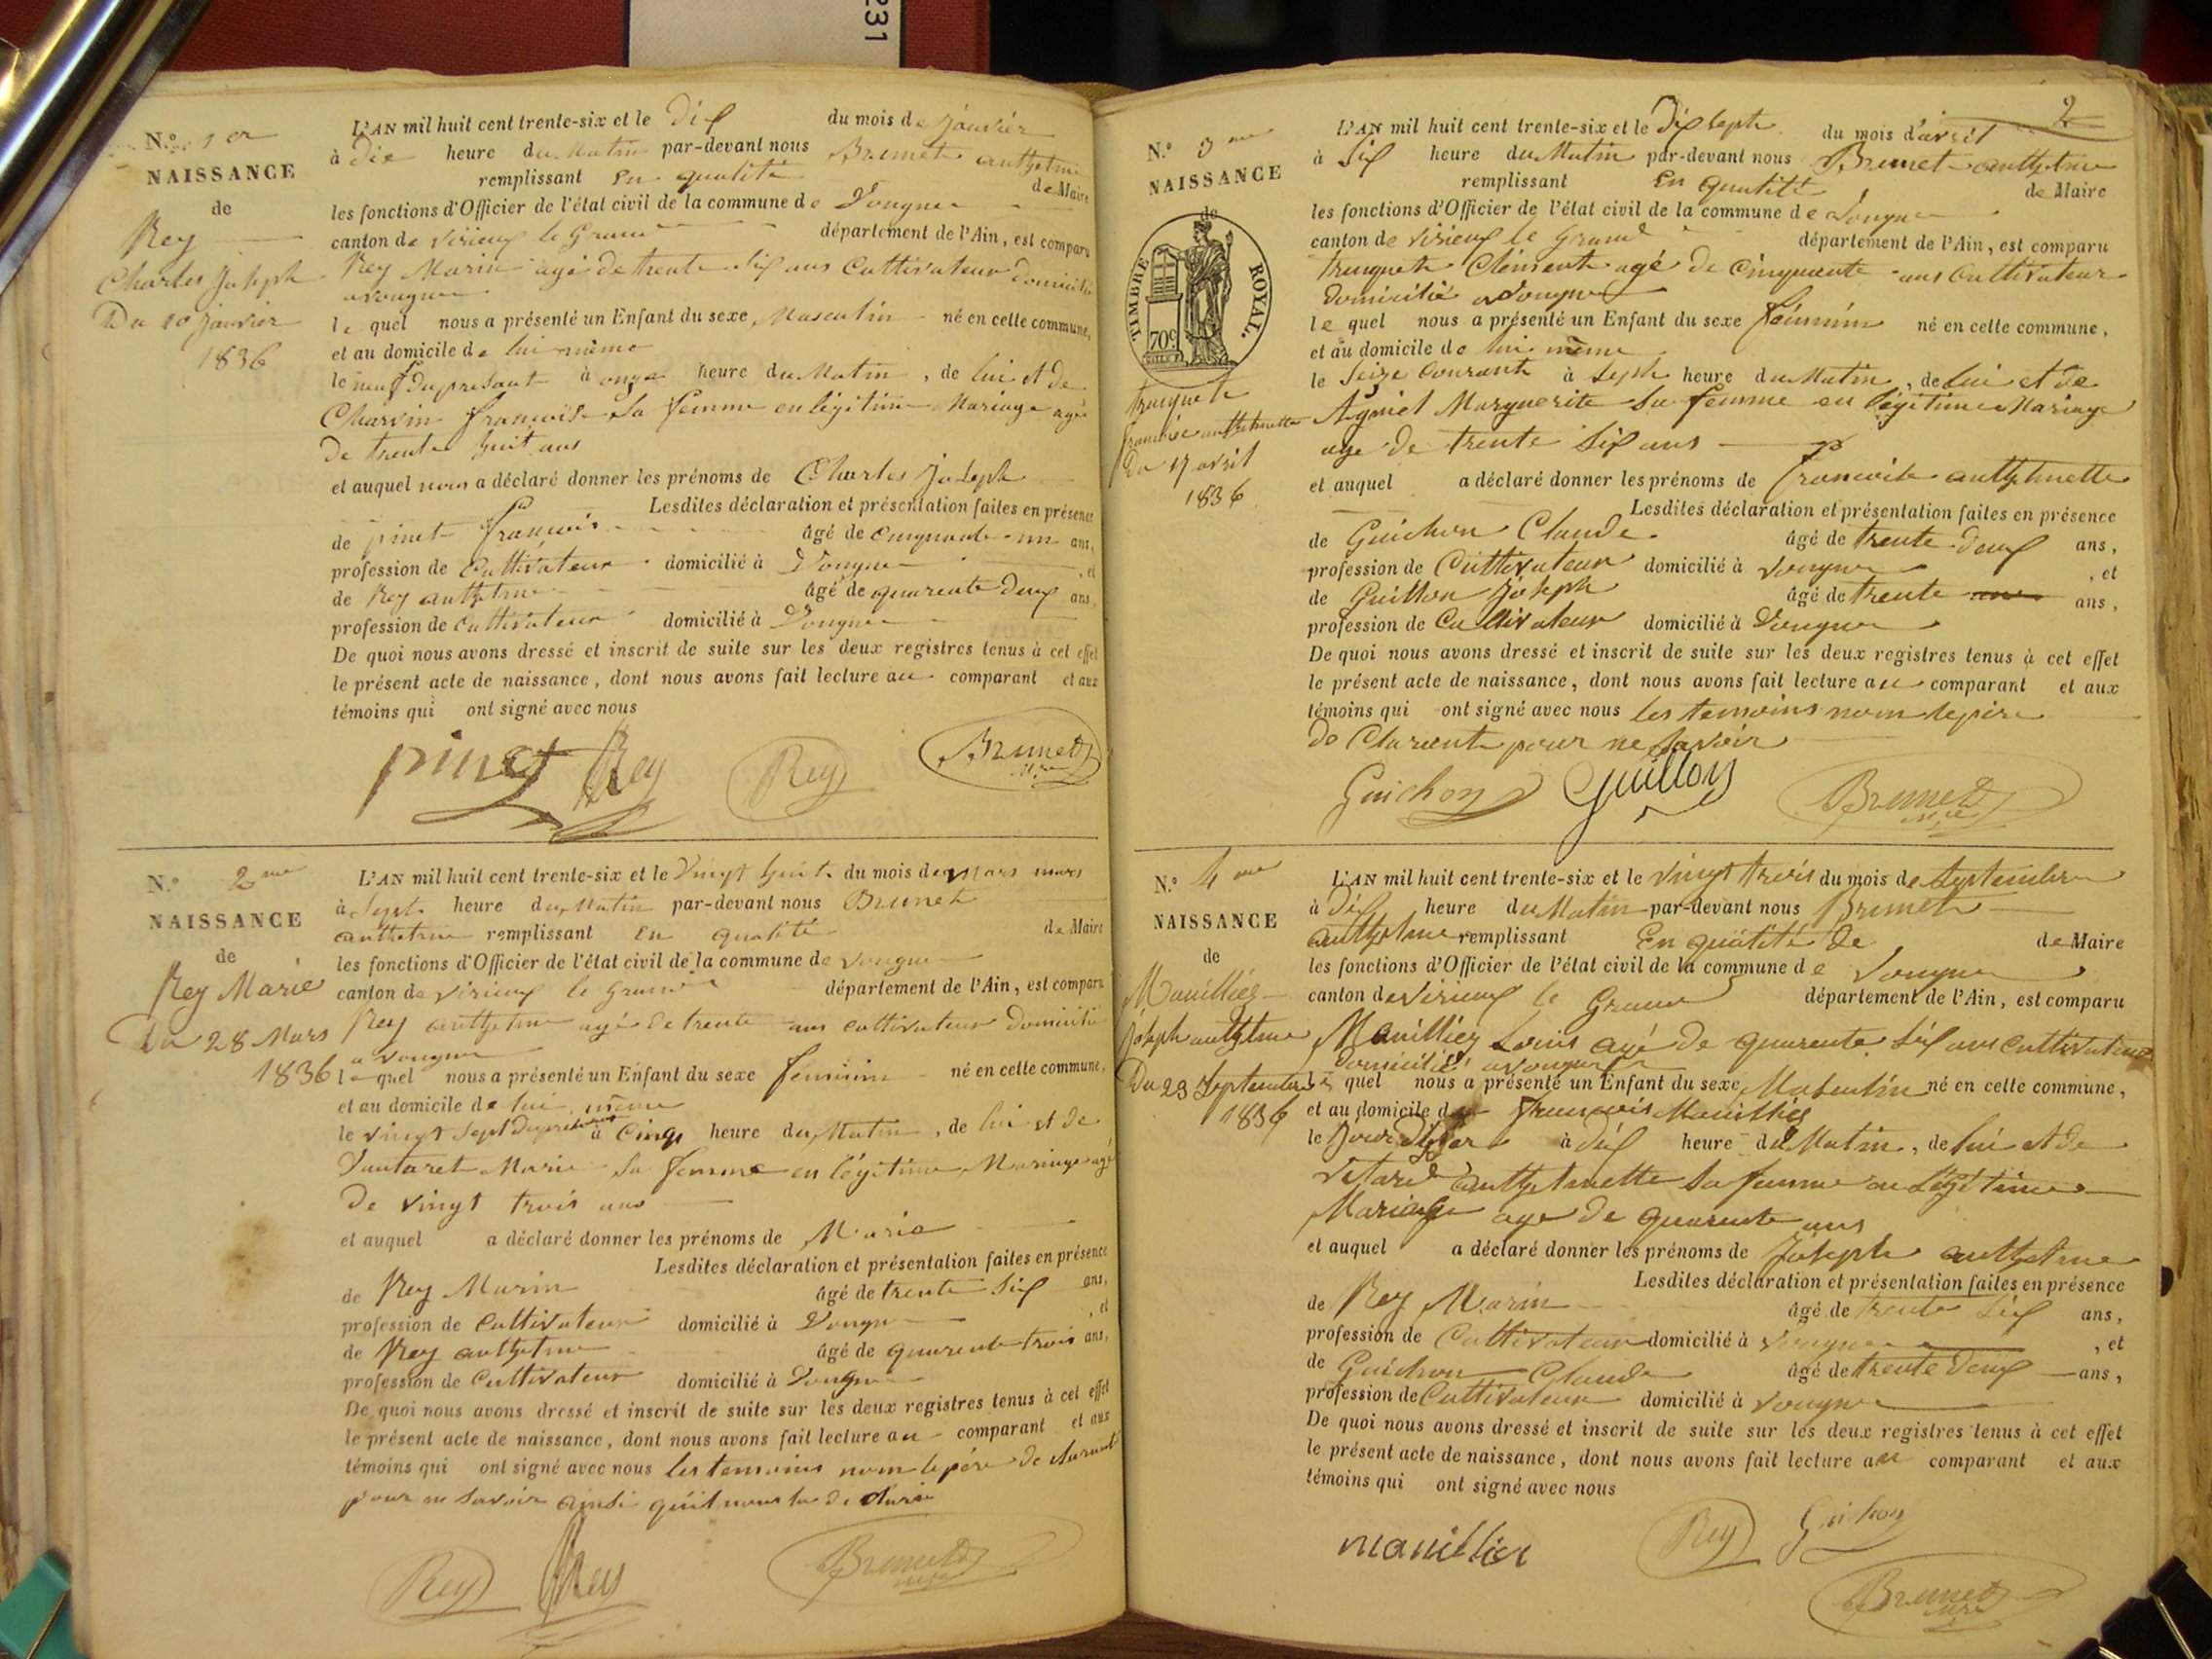 231
N.o 1er
NAISSANCE
de
Rey
Charles Joseph
Du 10 janvier
1836
L'AN mil huit cent trente-six et le Dix du mois de janvier
à Dix heure du Matin par-devant nous Brunet anthelme
remplissant En qualité de Maire
les fonctions d'Officier de l'état civil de la commune de Vongne
canton de Virieux le Grand département de l'Ain, est comparu
Rey Marin agé de trente six ans Cultivateur domicilié
a vongne
le quel nous a présenté un Enfant du sexe Masculin né en cette commune,
et au domicile de lui même
le neuf du present à onze heure du Matin, de lui et de
Charvin francoise sa femme en légitime Mariage agé
de trente huit ans
et auquel nous a déclaré donner les prénoms de Charles Joseph
Lesdites déclaration et présentation faites en présence
de pinet francois âgé de cinquante un ans,
profession de Cultivateur domicilié à Vongne, et
de Rey anthelme âgé de quarente deux ans,
profession de Cultivateur domicilié à Vongne
De quoi nous avons dressé et inscrit de suite sur les deux registres tenus à cet effet
le présent acte de naissance, dont nous avons fait lecture au comparant et aux
témoins qui ont signé avec nous
pinet Rey Rey Brunet
Mre
N.o 2me
NAISSANCE
de
Rey Marie
Du 28 Mars
1836
L'AN mil huit cent trente-six et le Vingt huit du mois de mars mars
à Sept heure du Matin par-devant nous Brunet
anthelme remplissant En qualité de Maire
les fonctions d'Officier de l'état civil de la commune de vongne
canton de Virieux le Grand département de l'Ain, est comparu
Rey anthelme agé de trente ans cultivateur domicilié
a vongne
le quel nous a présenté un Enfant du sexe feminin né en cette commune,
et au domicile de lui même
le vingt Sept du present à Cinq heure du Matin, de lui et de
Vautaret Marie sa femme en légitime Mariage agé
de vingt trois ans
et auquel a déclaré donner les prénoms de Marie
Lesdites déclaration et présentation faites en présence
de Rey Marin âgé de trente six ans,
profession de Cultivateur domicilié à Vongne, et
de Rey anthelme âgé de quarente trois ans,
profession de Cultivateur domicilié à Vongne
De quoi nous avons dressé et inscrit de suite sur les deux registres tenus à cet effet
le présent acte de naissance, dont nous avons fait lecture au comparant et aux
témoins qui ont signé avec nous les temoins nom le père de
pour ne savoir ainsi qu'il nous la
Rey Rey Brunet
mre
2
N.o 3me
NAISSANCE
de
TIMBRE ROYAL.
70c
truquet
francoise anthelmette
Du 17 avril
1836
L'AN mil huit cent trente-six et le Dix Sept du mois d'avril
à Six heure du Matin par-devant nous Brunet anthelme
remplissant En qualité de Maire
les fonctions d'Officier de l'état civil de la commune de Vongne
canton de Virieux le Grand département de l'Ain, est comparu
truquet Clément agé de Cinquante ans Cultivateur
domicilié a vongne
le quel nous a présenté un Enfant du sexe féminin né en cette commune,
et au domicile de lui même
le Seize Courant à Sept heure du Matin, de lui et de
Agniel Marguerite sa femme en légitime Mariage
age de trente Six ans
et auquel a déclaré donner les prénoms de francoise anthelmette
Lesdites déclaration et présentation faites en présence
de Guichon Claude âgé de trente deux ans,
profession de Cultivateur domicilié à vongne, et
de Guillon Joseph âgé de trente ans,
profession de Cultivateur domicilié à Vongne
De quoi nous avons dressé et inscrit de suite sur les deux registres tenus à cet effet
le présent acte de naissance, dont nous avons fait lecture au comparant et aux
témoins qui ont signé avec nous les temoins nom le père
de Clarent pour ne savoir
Guichon Guillon Brunet
Mre
N.o 4me
NAISSANCE
de
Manilliez
Joseph anthelme
Du 23 Septembre
1836
L'AN mil huit cent trente-six et le vingt trois du mois de Septembre
à Dix heure du Matin par-devant nous Brunet
anthelme remplissant En qualité de de Maire
les fonctions d'Officier de l'état civil de la commune de Vongne
canton de Virieux le Grand département de l'Ain, est comparu
Manilliez Louis agé de quarente Six ans cultivateur
domicilié a vongne
le quel nous a présenté un Enfant du sexe Masculin né en cette commune,
et au domicile de francois Manilliez
le jour d'hier à Dix heure du Matin, de lui et de
Vetard anthelmette sa femme en légitime
Mariage age de quarente ans
et auquel a déclaré donner les prénoms de Joseph anthelme
Lesdites déclaration et présentation faites en présence
de Rey Marin âgé de trente Six ans,
profession de Cultivateur domicilié à vongne, et
de Guichon Claude âgé de trente deux ans,
profession de Cultivateur domicilié à vongne
De quoi nous avons dressé et inscrit de suite sur les deux registres tenus à cet effet
le présent acte de naissance, dont nous avons fait lecture au comparant et aux
témoins qui ont signé avec nous
manillier Rey Guichon
Brunet
Mre